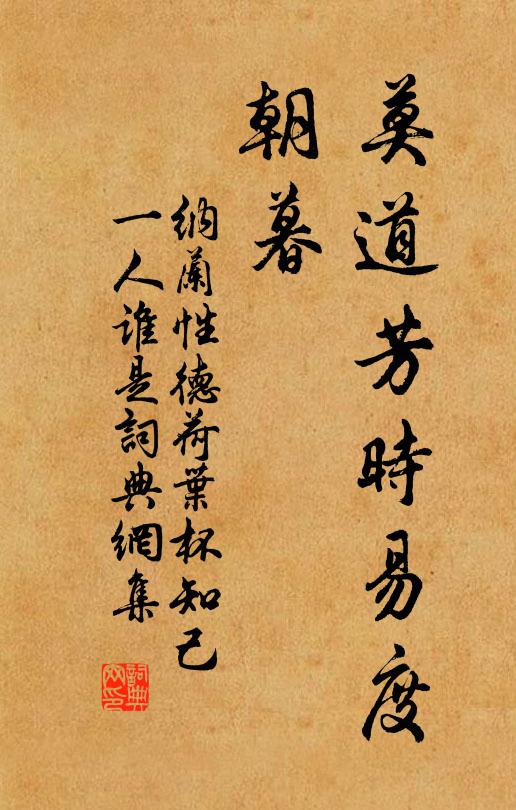 莫道芳時易度
朝暮
納蘭性德荷葉杯知己
一人誰是詞典網集
詞典
網印